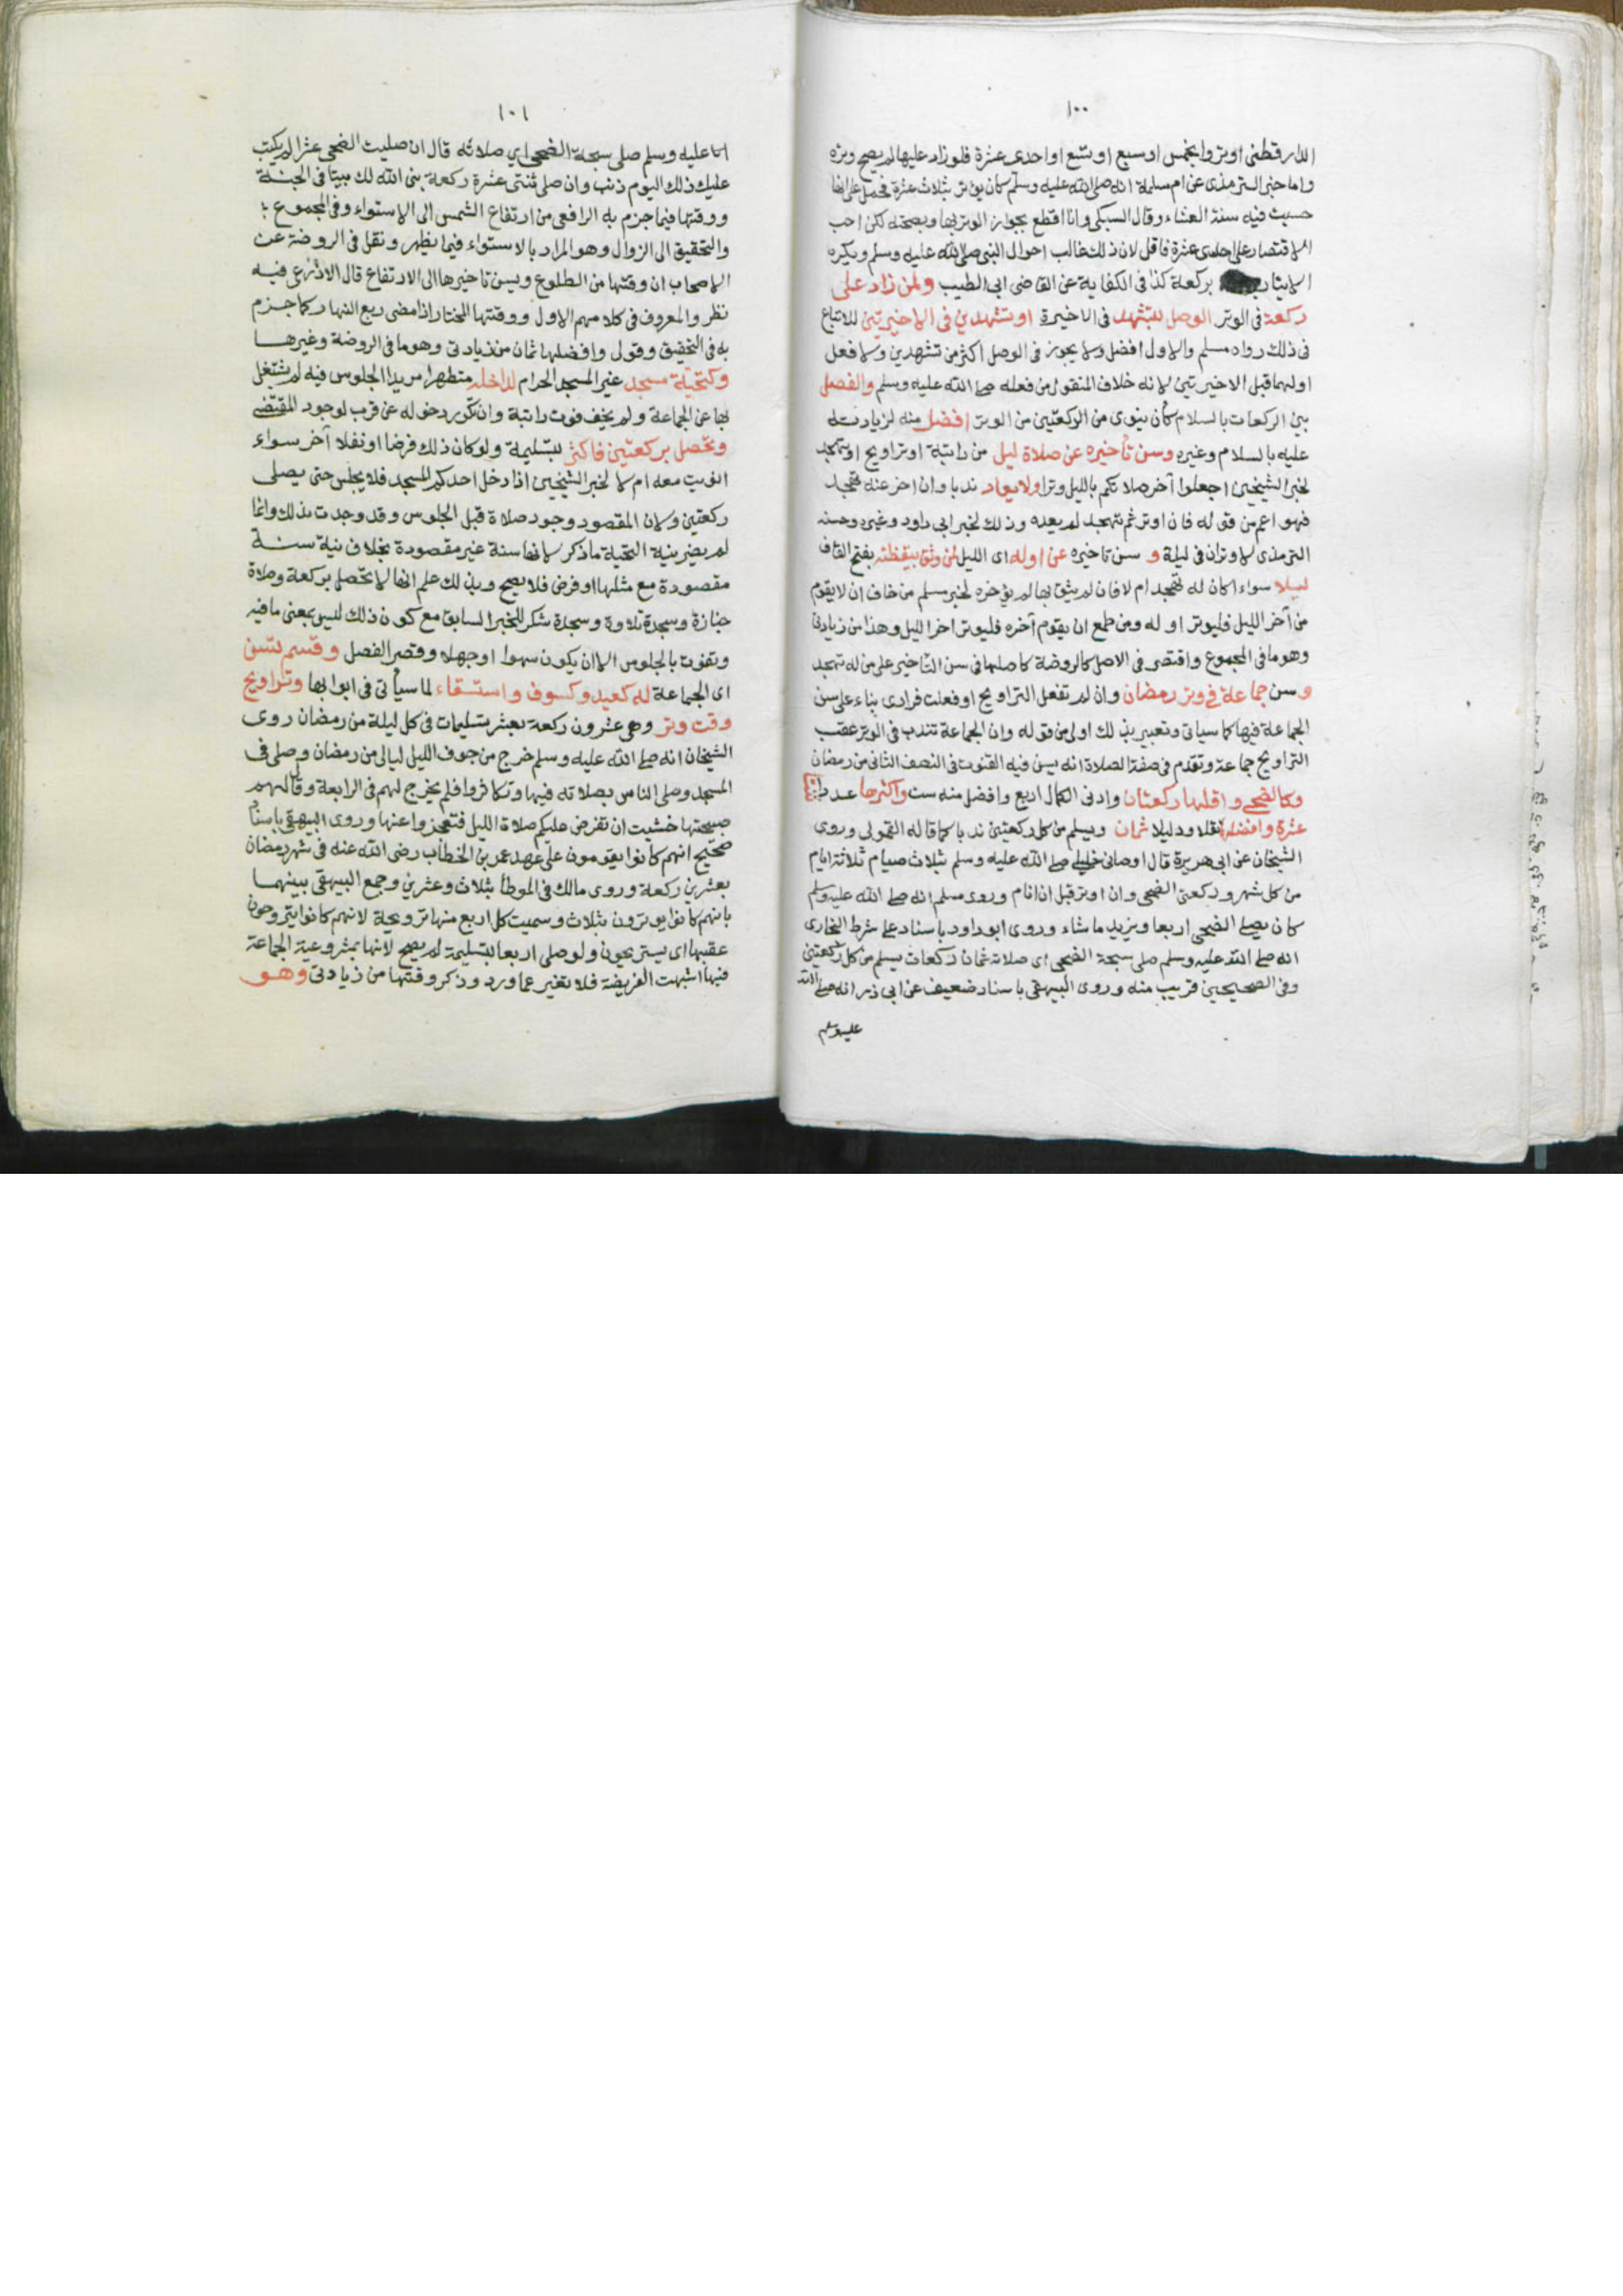 ١٠٠
الدارقطنى اوتروا بخمس او سبع او تسع او احدى عشرة فلو زاد عليها لم يصح وتره
واما خبر الترمذى عن ام سلمة انه صلى الله عليه وسلم كان يوتر بثلاث عشرة فحمل على انها
حسبت فيه سنة العشاء وقال السبكى وانا اقطع بجواز الوتر بها وبصحته لكن احب
الاقتصار على احدى عشرة فاقل لان ذلك غالب احوال النبى صلى الله عليه وسلم ويكره
الايتار بركعة كذا فى الكفاية عن القاضى ابى الطيب ولمن زاد على
ركعة فى الوتر الوصل بتشهد فى الاخيرة او تشهدين فى الاخيرتين للاتباع
فى ذلك رواه مسلم والاول افضل ولا يجوز فى الوصل اكثر من تشهدين ولا فعل
اولهما قبل الاخيرتين لانه خلاف المنقول من فعله صلى الله عليه وسلم والفصل
بين الركعات بالسلام كأن ينوى من الركعتين من الوتر افضل منه لزيادته
عليه بالسلام وغيره وسن تأخيره عن صلاة ليل من راتبة او تراويح او تهجد
لخبر الشيخين اجعلوا آخر صلاتكم بالليل وترا ولا يعاد ندبا وان اخر عنه تهجد
فهو اعم من قوله فان اوتر ثم تهجد لم يعده وذلك لخبر ابى داود وغيره وحسنه
الترمذى لا وتران فى ليلة و سن تاخيره عن اوله اى الليل لمن وثق بيقظته بفتح القاف
ليلا سواء اكان له تهجد ام لا فان لم يثق بها لم يؤخره لخبر مسلم من خاف ان لا يقوم
من آخر الليل فليوتر اوله ومن طمع ان يقوم آخره فليوتر اخر الليل وهذا من زيادتى
وهو ما فى المجموع واقتصر فى الاصل كالروضة كاصلها فى سن التاخير على من له تهجد
و سن جماعة فى وتر رمضان وان لم تفعل التراويح او فعلت فرادى بناء على سن
الجماعة فيها كما سياتى وتعبيرى بذلك اولى من قوله وان الجماعة تندب فى الوتر عقب
التراويح جماعة وتقدم فى صفة الصلاة انه يسن فيه القنوت فى النصف الثانى من رمضان
وكالضحى واقلها ركعتان وادنى الكمال اربع وافضل منه ست واكثرها عددا
عشرة وافضلها نقلا ودليلا ثمان ويسلم من كل ركعتين ندبا كما قاله القمولى وروى
الشيخان عن ابى هريرة قال اوصانى خليلى صلى الله عليه وسلم بثلاث صيام ثلاثة ايام
من كل شهر وركعتى الضحى وان اوتر قبل ان انام وروى مسلم انه صلى الله عليه وسلم
كان يصلى الضحى اربعا ويزيد ما شاء وروى ابو داود باسناد على شرط البخارى
انه صلى الله عليه وسلم صلى سبحة الضحى اى صلاته ثمان ركعات يسلم من كل ركعتين
وفى الصحيحين قريب منه وروى البيهقى باسناد ضعيف عن ابى ذر انه صلى الله
عليه وسلم
١٠١
عليه وسلم صلى سبحة الضحى اي صلاته قال ان صليت الضحى عشرا لم يكتب
عليك ذلك اليوم ذنب وان صلى ثنتى عشرة ركعة بنى الله لك بيتا فى الجنة
ووقتها فيما جزم به الرافعى من ارتفاع الشمس الى الاستواء وفى المجموع
والتحقيق الى الزوال وهو المراد بالاستواء فيما يظهر ونقل فى الروضة عن
الاصحاب ان وقتها من الطلوع ويسن تاخيرها الى الارتفاع قال الاذرعى فيه
نظر والمعروف فى كلامهم الاول ووقتها المختار اذا مضى ربع النهار كما جزم
به فى التحقيق وقولى وافضلها ثمان من زيادتى وهو ما فى الروضة وغيرها
وكتحية مسجد غير المسجد الحرام لداخله متطهرا مريدا الجلوس فيه لم يشتغل
بها عن الجماعة ولم يخف فوت راتبة وان تكرر دخوله عن قرب لوجود المقتضى
وتحصل بركعتين فاكثر بتسليمة ولو كان ذلك فرضا او نفلا آخر سواء
انويت معه ام لا لخبر الشيخين اذا دخل احدكم المسجد فلا يجلس حتى يصلى
ركعتين ولان المقصود وجود صلاة قبل الجلوس وقد وجدت بذلك وانما
لم يضر نية التحية ما ذكر لانها سنة غير مقصودة بخلاف نية سنة
مقصودة مع مثلها او فرض فلا يصح وبذلك علم انها لا تحصل بركعة وصلاة
جنازة وسجدة تلاوة وسجدة شكر للخبر السابق مع كون ذلك ليس بمعنى ما فيه
وتفوت بالجلوس الا ان يكون سهوا او جهلا وقصر الفصل وقسم تسن
اى الجماعة له كعيد وكسوف واستسقاء لما سيأتى فى ابوابها وتراويح
وقت وتر وهى عشرون ركعة بعشر تسليمات فى كل ليلة من رمضان روى
الشيخان انه صلى الله عليه وسلم خرج من جوف الليل ليالى من رمضان وصلى فى
المسجد وصلى الناس بصلاته فيها وتكاثروا فلم يخرج لهم فى الرابعة وقال لهم
صبيحتها خشيت ان تفرض عليكم صلاة الليل فتعجزوا عنها وروى البيهقى باسناد
صحيح انهم كانوا يقومون على عهد عمر بن الخطاب رضى الله عنه فى شهر رمضان
بعشرين ركعة وروى مالك فى الموطأ بثلاث وعشرين وجمع البيهقى بينهما
بانهم كانوا يوترون بثلاث وسميت كل اربع منها ترويحة لانهم كانوا يتروحون
عقبها اى يستريحون ولو صلى اربعا بتسليمة لم يصح لانها بمشروعية الجماعة
فيها اشبهت الفريضة فلا تغير عما ورد وذكر وقتها من زيادتى وهو